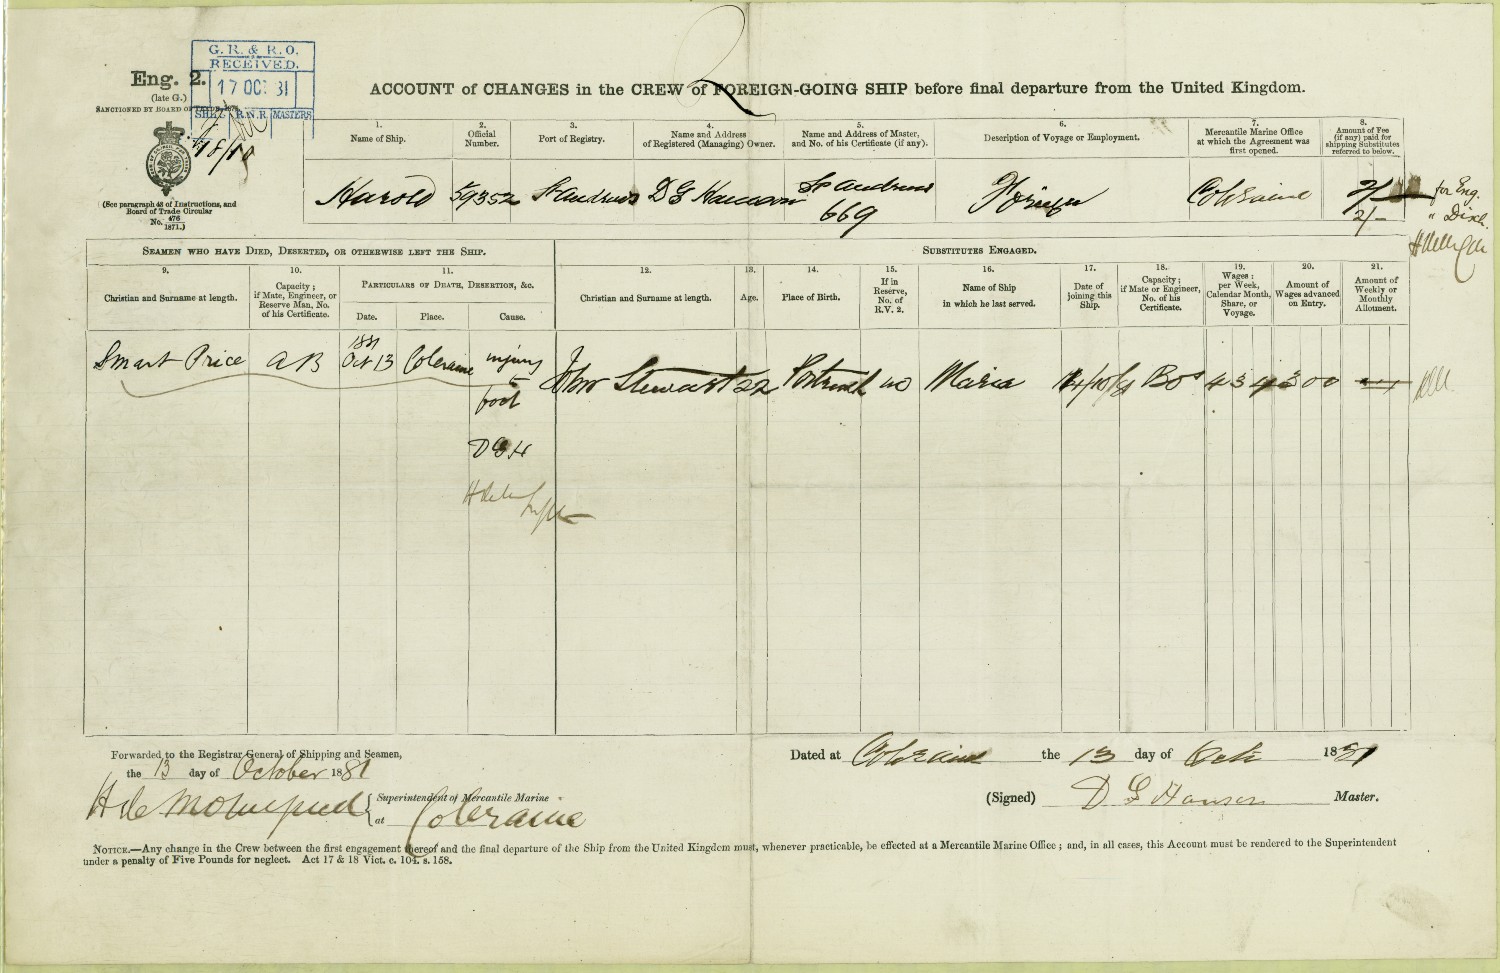 G. R. & R. O.
RECEIVED.
17 OCT 81
SHIP R.N.R. MASTERS
Eng. 2.
(late G.)
SANCTIONED BY BOARD OF TRADE, 1871.
18/10
(See paragraph 48 of Instructions, and
Board of Trade Circular
No. 476
1871.)
2
ACCOUNT of CHANGES in the CREW of FOREIGN-GOING SHIP before final departure from the United Kingdom.
1.
Name of Ship.
2.
Official
Number.
3.
Port of Registry.
4.
Name and Address
of Registered (Managing) Owner.
5.
Name and Address of Master,
and No. of his Certificate (if any).
6.
Description of Voyage or Employment.
7.
Mercantile Marine Office
at which the Agreement was
first opened.
8.
Amount of Fee
(if any) paid for
shipping Substitutes
referred to below.
Harold 59352 St Andrews D G Hanson St Andrews Foreign Coleraine 2/- for Eng.
669 2/- " Disch.
SEAMEN WHO HAVE DIED, DESERTED, OR OTHERWISE LEFT THE SHIP.
SUBSTITUTES ENGAGED.
9.
Christian and Surname at length.
10.
Capacity;
if Mate, Engineer, or
Reserve Man, No.
of his Certificate.
11.
PARTICULARS OF DEATH, DESERTION, &c.
Date.
Place.
Cause.
12.
Christian and Surname at length.
13.
Age.
14.
Place of Birth.
15.
If in
Reserve,
No. of
R.V. 2.
16.
Name of Ship
in which he last served.
17.
Date of
joining this
Ship.
18.
Capacity;
if Mate or Engineer,
No. of his
Certificate.
19.
Wages:
per Week,
Calendar Month,
Share, or
Voyage.
20.
Amount of
Wages advanced
on Entry.
21.
Amount of
Weekly or
Monthly
Allotment.
1881
Smart Price A B Oct 13 Coleraine injury
to
foot
John Stewart 22 Portrush no Maria 14/10/81 Bos
D G H
Forwarded to the Registrar General of Shipping and Seamen,
the 13 day of October 1881
Superintendent of Mercantile Marine
at Coleraine
Dated at Coleraine the 13 day of Oct 1881
(Signed) D G Hanson Master.
NOTICE.—Any change in the Crew between the first engagement thereof and the final departure of the Ship from the United Kingdom must, whenever practicable, be effected at a Mercantile Marine Office; and, in all cases, this Account must be rendered to the Superintendent
under a penalty of Five Pounds for neglect. Act 17 & 18 Vict. c. 104. s. 158.